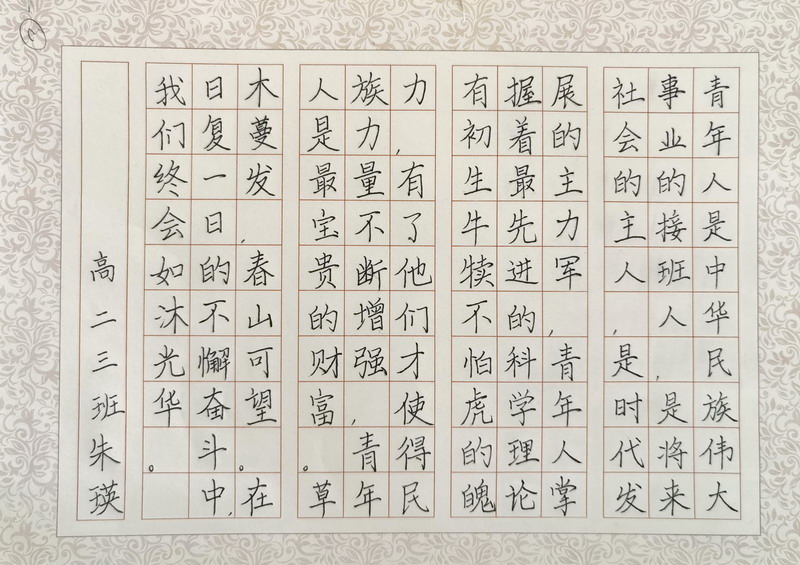 青年人是中华民族伟大
事业的接班人，是将来
社会的主人，是时代发
展的主力军，青年人掌
握着最先进的科学理论
有初生牛犊不怕虎的魄
力，有了他们才使得民
族力量不断增强，青年
人是最宝贵的财富。草
木蔓发，春山可望。在
日复一日，的不懈奋斗中，
我们终会如沐光华。
高二三班朱瑛